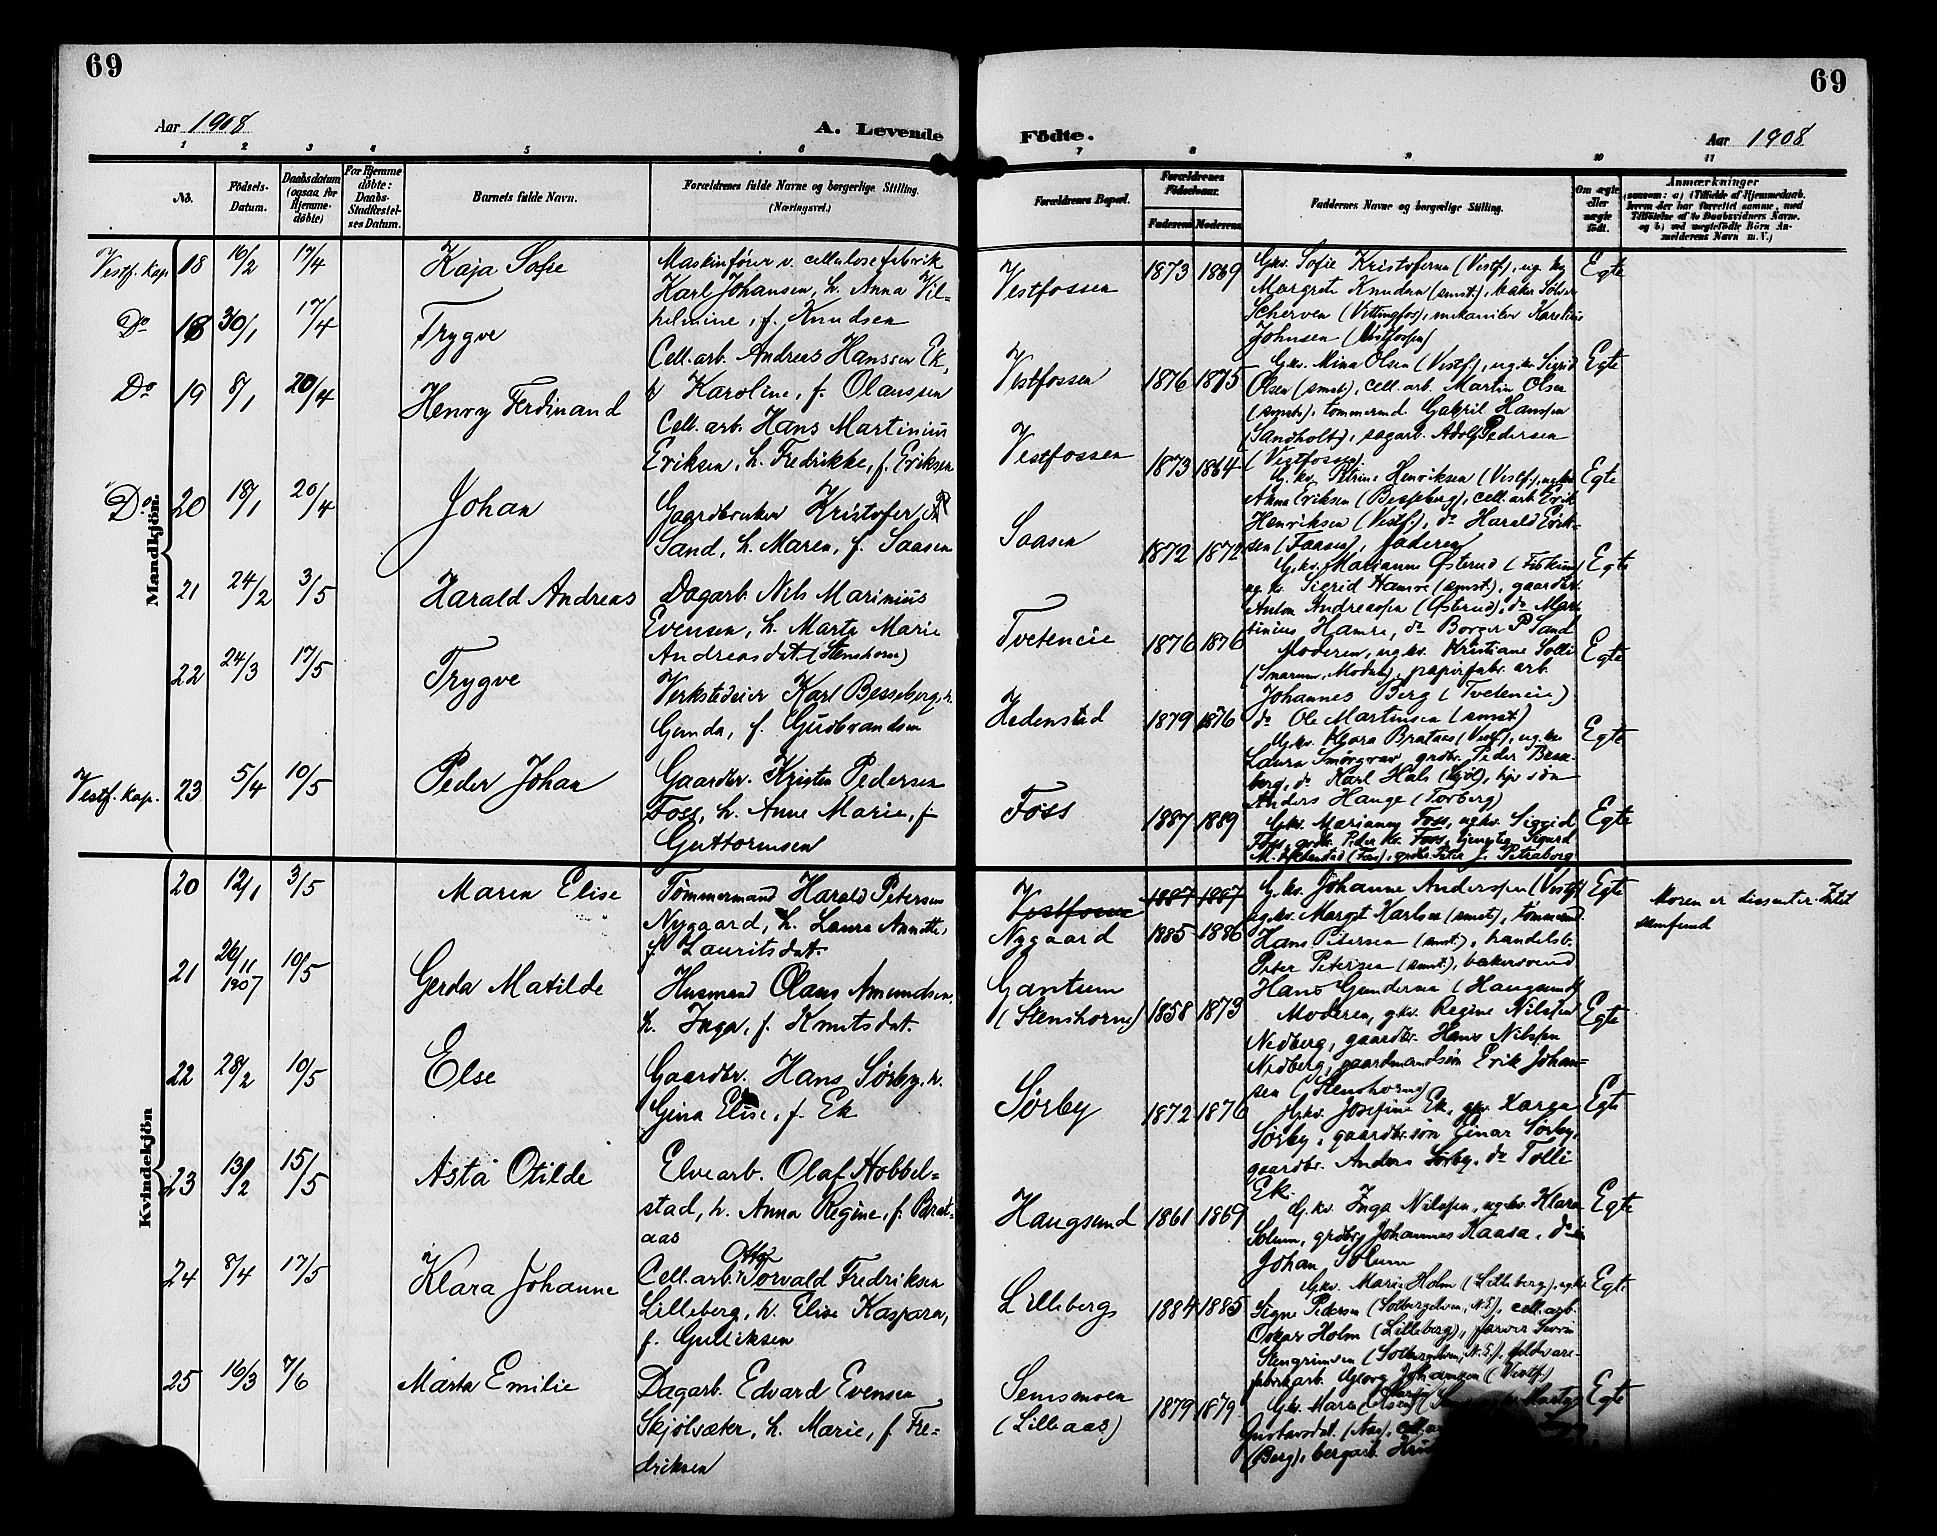 69
69
Aar 1908
A. Levende
Födte.
Aar 1908
1 2 3 4 5 6
7 8 9 10 11
No.
Födsels-Datum.
Daabsdatum (ogsaa for Hjemme-döbte)
For Hjemme döbte: Daabs-Stadfestel-ses Datum.
Barnets fulde Navn.
Forældrenes fulde Navne og borgerlige Stilling. (Næringsvei.)
Forældrenes Bopæl.
Forældrenes Födselsaar.
Faderens
Moderens
Faddernes Navne og borgerlige Stilling.
Om ægte eller uægte födt.
Anmærkninger
Mandkjön.
Vestf. kap. 18 16/2 17/4 Kaja Sofie
Maskinfører v. cellulosefabrik
Karl Johansen, h. Anna Vil=
helmine, f. Knudsen
Vestfossen 1873 1869
Gkv. Sofie Kristofersen (Vestf.), ug. kv
Margrete Knudsen (smst.), baker
Scherven (Vittingfos), Karoline
Johnsen (Vestfossen)
Egte
Do 18 30/1 17/4 Trygve
Cell. arb. Andreas Hanssen Ek,
h Karoline, f. Olaussen
Vestfossen 1876 1875
Gkv. Mina Olsen (Vestf.), ug. kv Sigrid
Olsen (smst.), cell. arb. Martin Olsen
(smst.), tømmermd. Gabriel Hanssen
(Sandholt), sagarb. Adolf Pedersen
(Vestfossen)
Egte
Do 19 8/1 20/4 Henry Ferdinand
Cell. arb. Hans Martinius
Eriksen, h. Fredrikke, f. Eriksen
Vestfossen 1873 1864
G. kv. Petrine Henriksen (Vestf.), ug. kv
Anna Eriksen (Besseberg), cell. arb. Erik
Henriksen (Vestf.), do Harald Erik=
sen (Faasen), faderen
Egte
Do 20 18/1 20/4 Johan
Gaardbruker Kristofer P
Sand, h. Maren, f. Saasen
Saasen 1872 1872
Gkv. Marianne Østerud (Fiskum)
ug. kv. Sigrid Hamre (smst.), gaardbr.
Anton Andreassen (Østerud), do Mar=
tinius Hamre, do Borger P Sand
Egte
21 24/2 3/5 Harald Andreas
Dagarb. Nils Marinius
Evensen, h. Marta Marie
Andreasdat. (Stenshorn)
Tveteneie 1876 1876
Moderen, ug. kv. Kristiane Solli
(Snarum, Modum), papirfabr. arb.
Johannes Berg (Tveteneie)
do Ole Martinsen (smst)
Egte
22 24/3 17/5 Trygve
Verkstedeier Karl Besseberg, h.
Gunda, f. Gudbrandsen
Hedenstad 1879 1876
G.kv. Klara Brataas (Vestf.), ug. kv
Laura Smørgrav grdbr. Peder Besse=
berg, do Karl Hals (Hjøl),
Anders Hauge (Torberg)
Egte
Vestf. kap. 23 5/4 10/5 Peder Johan
Gaardbr. Kristen Pedersen
Foss, h. Anne Marie, f
Guttormsen
Foss 1887 1889
Gkv. Marianne Foss, ug. kv. Sigrid
Foss, grdbr. Peder Kr. Foss, Sigurd
Egte
Kvindekjön
20 12/1 3/5 Maren Elise
Tømmermand Harald Petersen
Nygaard, h. Laura Annette,
f. Lauritsdat.
Vestfossen 1887 1887
Nygaard 1885 1886
G.kv. Johanne Anderssen (Vestf)
ug. kv. Margit Karlsen (smst), tømmermd.
Hans Petersen (smst.), handelsb.
Peter Petersen (smst.), bakersvend
Hans Gundersen (Haugsund)
Egte
Moren er dissenter
samfund
21 26/11 1907 10/5 Gerda Matilde
Husmand Olaus Amundsen,
h. Inga, f. Knutsdat.
Gantum
(Stenshorne) 1858 1873
Moderen, gkv. Regine Nilssen
Nedberg, gaardbr. Hans Nilssen
Nedberg, gaardmandsøn Erik Johan=
sen (Stenshorne)
Egte
22 28/2 10/5 Else
Gaardbr. Hans Sørby, h.
Gina Elise, f. Ek
Sørby 1872 1876
Gkv. Josefine Ek, gkv. Karen
Sørby, gaardbr.søn Einar Sørby,
gaardbr. Anders Sørby, do Tolli
Ek.
Egte
23 13/2 15/5 Asta Otilde
Elvearb. Olaf Hobbel=
stad, h. Anna Regine, f. Brat=
aas
Haugsund 1861 1869
G. kv. Inga Nilssen, ug. kv. Klara
Solum, grdbr. Johannes Kaasa, do
Johan Solum
Egte
24 8/4 17/5 Klara Johanne
Otto
Cell. arb. Torvald Fredriksen
Lilleberg, h. Elise Kaspara,
f. Gulliksen
Lilleberg 1884 1885
Gkv. Marie Holm (Lilleberg), ug. kv
Signe Pedersen (Solbergelven, N.E.), cell. arb.
Oskar Holm (Lilleberg), farver
Stengrimsen (Solbergelven, N.E.),
fabrikarb. Johansen (Vestf.)
Egte
25 16/3 7/6 Marta Emilie
Dagarb. Edvard Evensen
Skjølsæter, h. Marie, f. Fre=
driksen
Semsmoen
(Lilleaas) 1879 1879
Gkv. Maren Olsen
Gustavsdat. (Aas),
(Berg), bergarb.
Egte